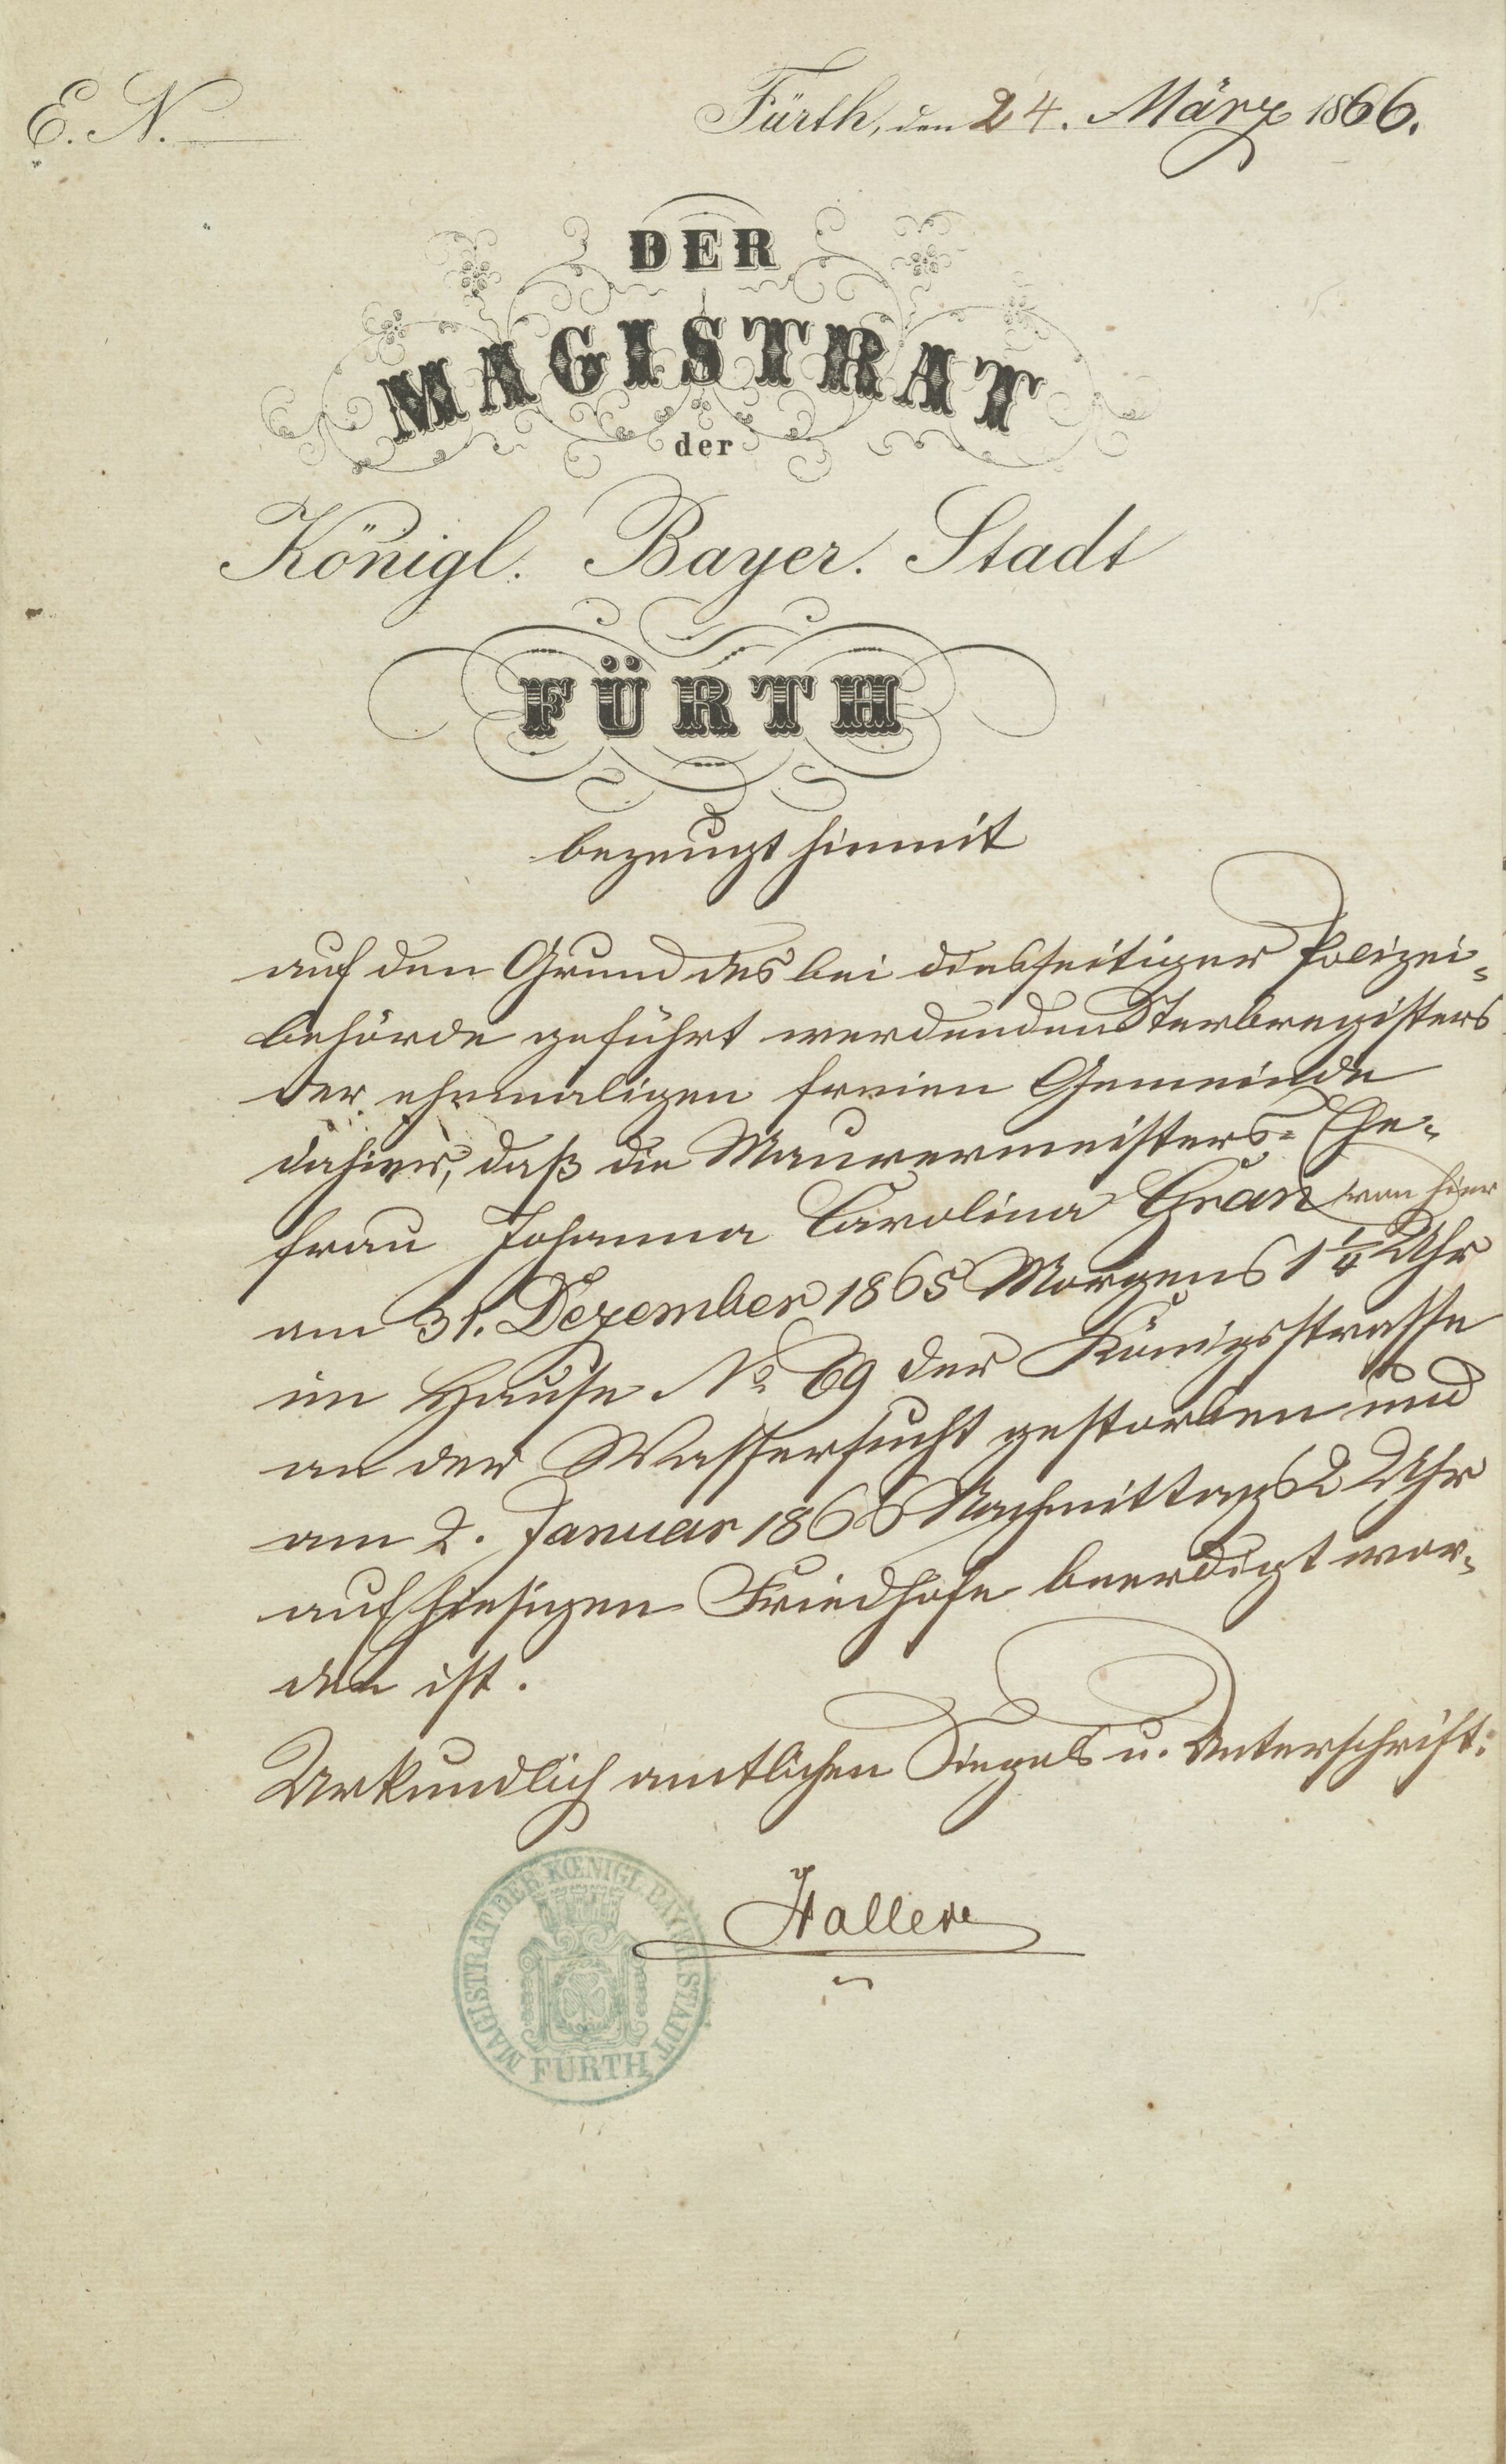 E. N.
Fürth, den 24. März 1866.
DER
MAGISTRAT
der
Königl. Bayer. Stadt
FÜRTH
bezeugt hiermit
auf den Grund des bei diesseitiger Polizei-
behörde geführt werdenden Sterberegisters
der ehemaligen freien Gemeinde
dahier, daß die Maurermeisters-Ehe-
frau Johanna Carolina Gran von hier
am 31. Dezember 1865 Morgens 1 1/4 Uhr
im Hause No. 69 der Königsstrasse
an der Wassersucht gestorben und
am 2. Januar 1866 Nachmittags 2 Uhr
auf hiesigen Friedhofe beerdigt wor-
den ist.
Urkundlich amtlichen Siegels u. Unterschrift.
Haller
MAGISTRAT DER KŒNIGL. BAYER. STADT
FÜRTH